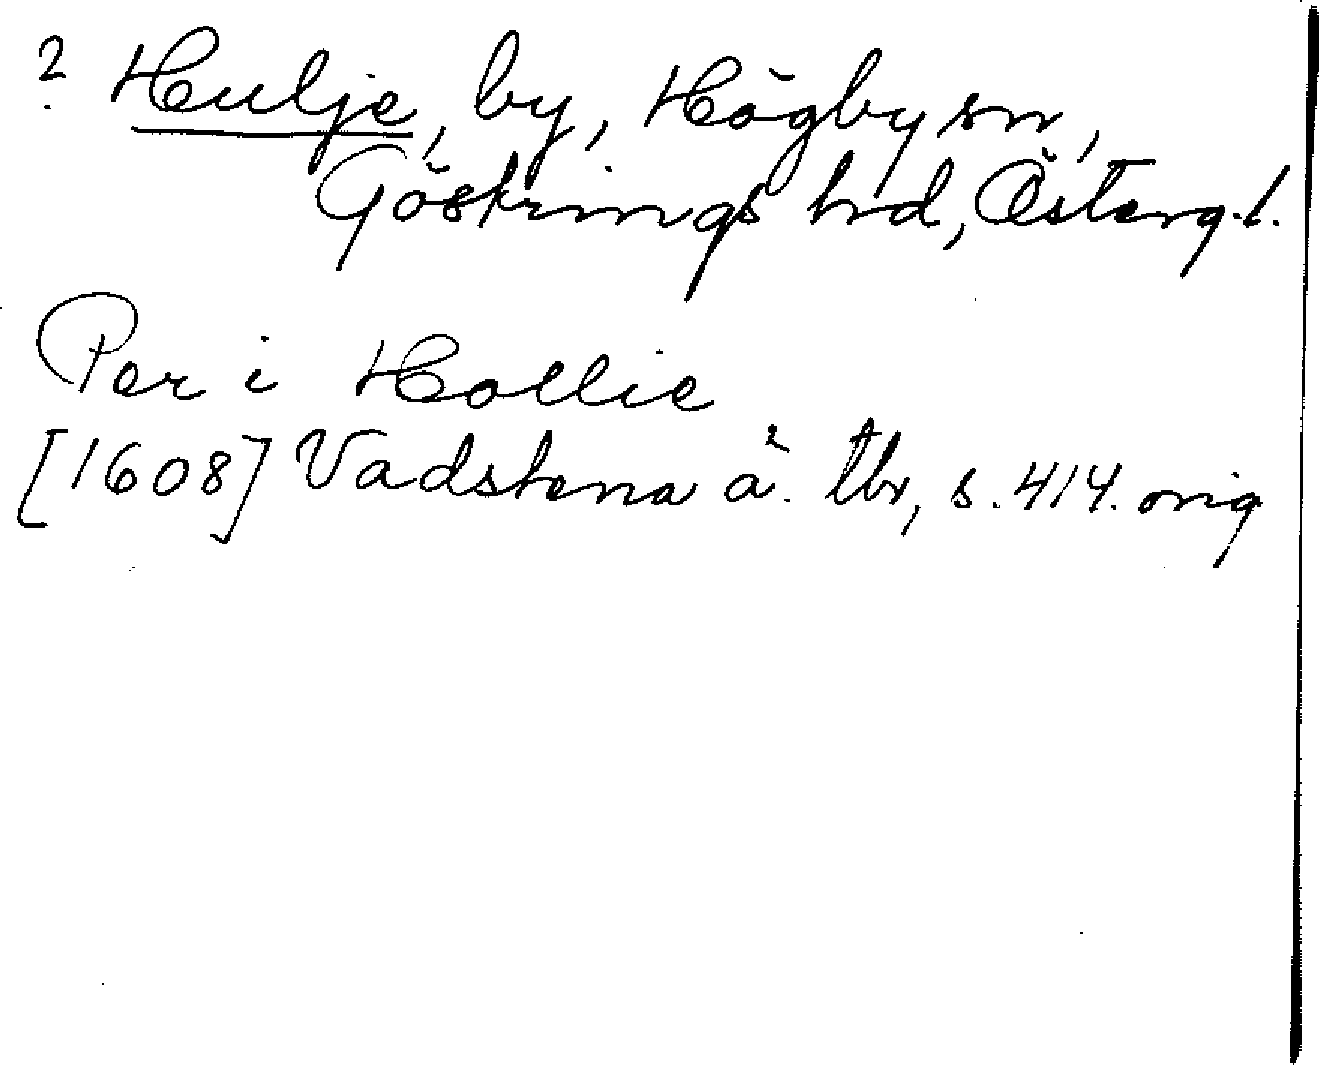 ? Hulje, by, Högby sn,
Göstrings hrd, Österg.l.
Per i Hollie
[1608] Vadstena ä. tbr, s. 414. orig